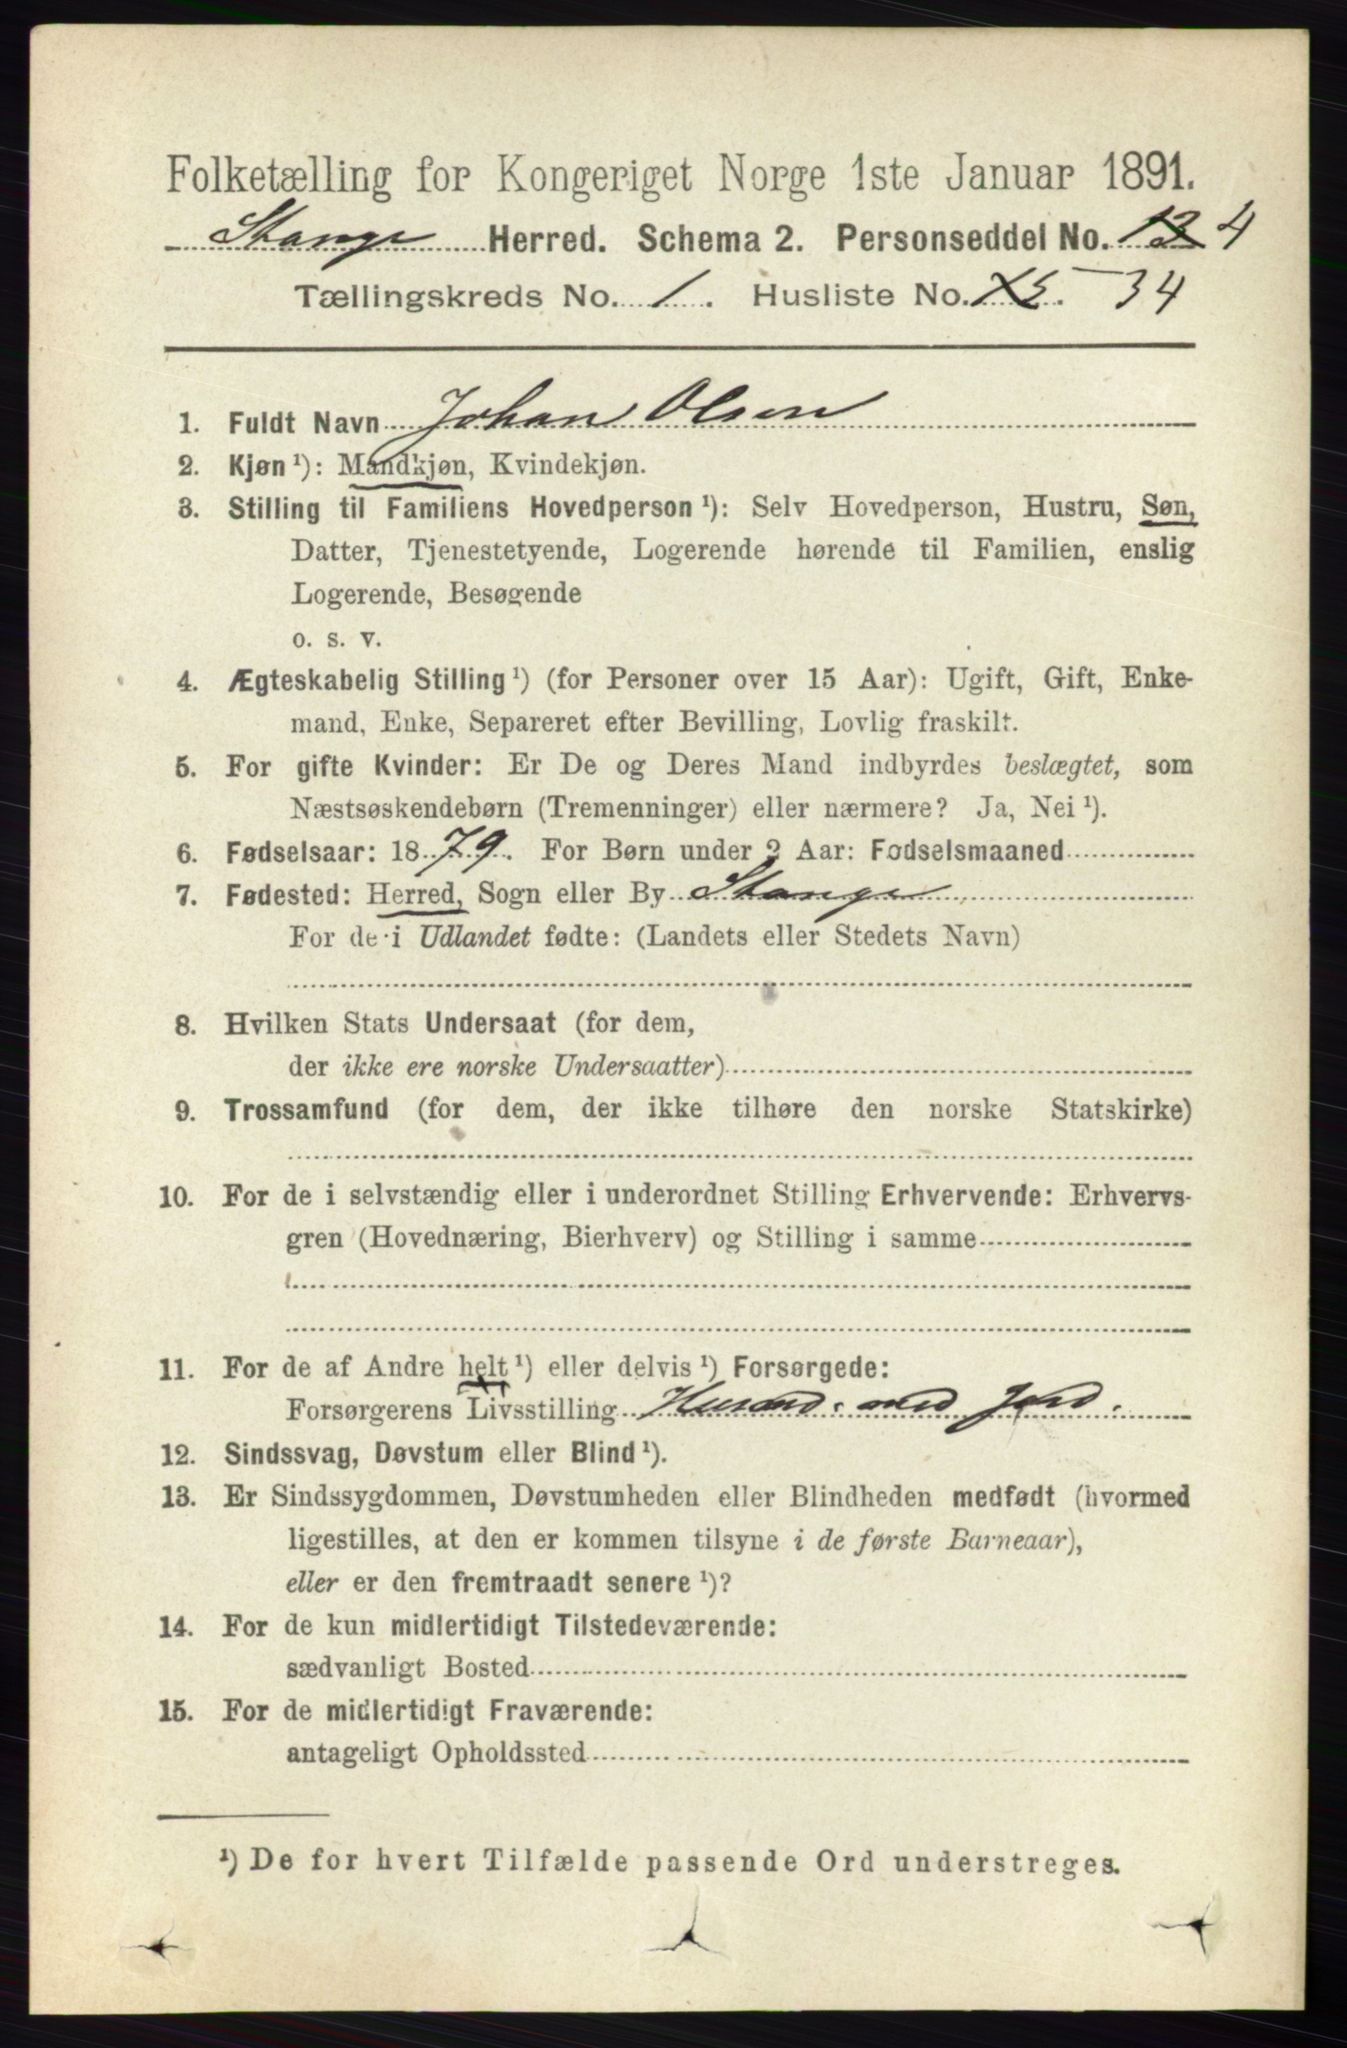 Folketælling for Kongeriget Norge 1ste Januar 1891.
Stange Herred. Schema 2. Personseddel No. 13 4
Tællingskreds No. 1. Husliste No. 15. 34
1. Fuldt Navn Johan Olsen
2. Kjøn¹): Mandkjøn, Kvindekjøn.
3. Stilling til Familiens Hovedperson¹): Selv Hovedperson, Hustru, Søn,
Datter, Tjenestetyende, Logerende hørende til Familien, enslig
Logerende, Besøgende
o. s. v.
4. Ægteskabelig Stilling¹) (for Personer over 15 Aar): Ugift, Gift, Enke-
mand, Enke, Separeret efter Bevilling, Lovlig fraskilt.
5. For gifte Kvinder: Er De og Deres Mand indbyrdes beslægtet, som
Næstsøskendebørn (Tremenninger) eller nærmere? Ja, Nei¹).
6. Fødselsaar: 1879. For Børn under 2 Aar: Fødselsmaaned
7. Fødested: Herred, Sogn eller By Stange
For de i Udlandet fødte: (Landets eller Stedets Navn)
8. Hvilken Stats Undersaat (for dem,
der ikke ere norske Undersaatter)
9. Trossamfund (for dem, der ikke tilhøre den norske Statskirke)
10. For de i selvstændig eller i underordnet Stilling Erhvervende: Erhvervs-
gren (Hovednæring, Bierhverv) og Stilling i samme
11. For de af Andre helt¹) eller delvis¹) Forsørgede:
Forsørgerens Livsstilling Husmd. med Jord.
12. Sindssvag, Døvstum eller Blind¹).
13. Er Sindssygdommen, Døvstumheden eller Blindheden medfødt (hvormed
ligestilles, at den er kommen tilsyne i de første Barneaar),
eller er den fremtraadt senere¹)?
14. For de kun midlertidigt Tilstedeværende:
sædvanligt Bosted
15. For de midlertidigt Fraværende:
antageligt Opholdssted
¹) De for hvert Tilfælde passende Ord understreges.